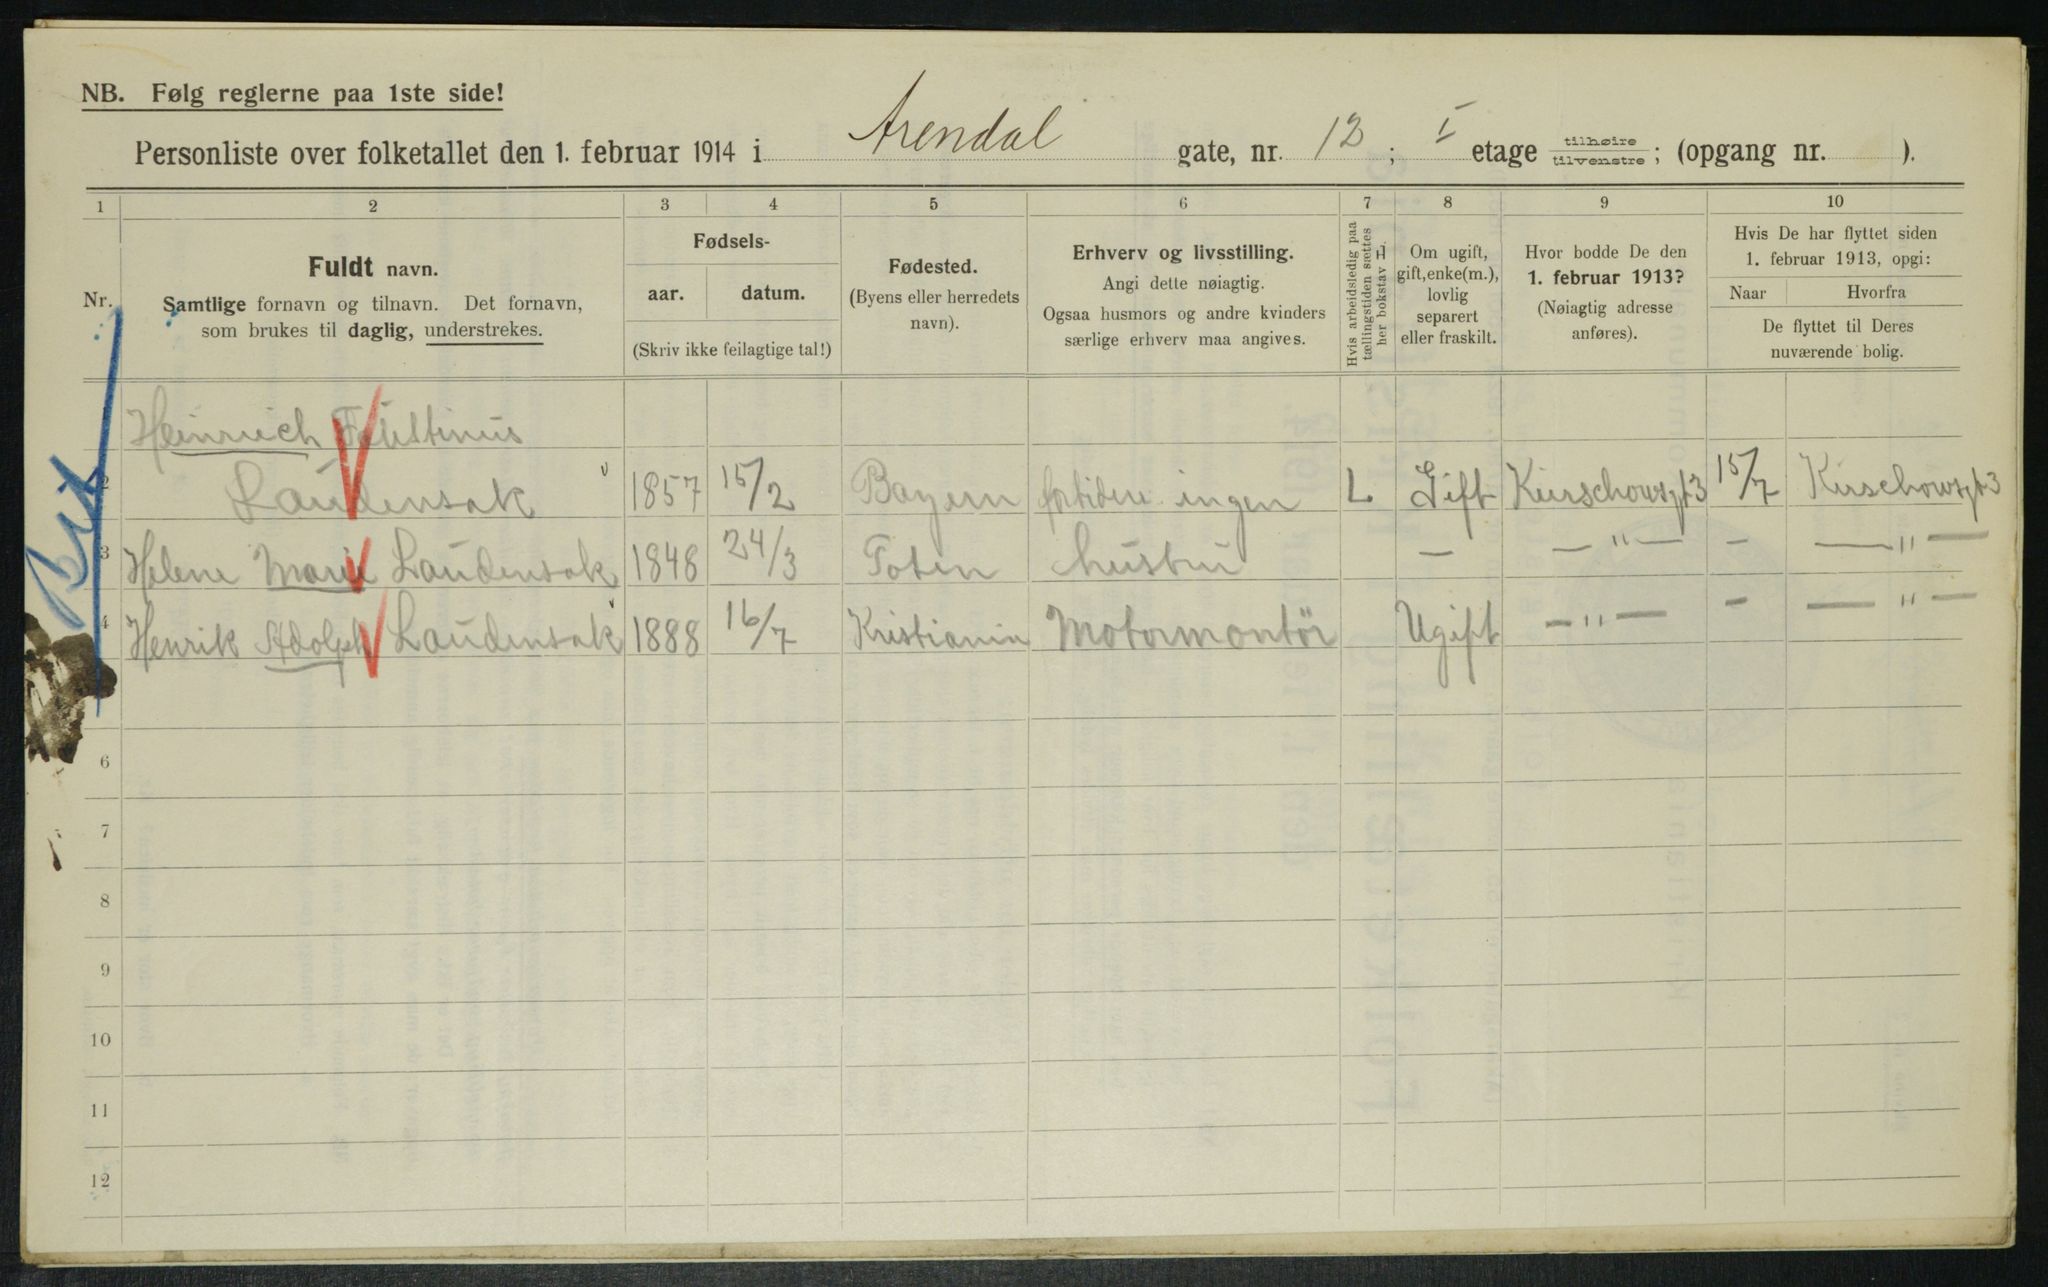 NB. Følg reglerne paa 1ste side!
Personliste over folketallet den 1. februar 1914 i Arendal gate, nr. 12 ; I etage tilhøire tilvenstre ; (opgang nr. ).
1 2 3 4 5 6 7 8 9 10
Nr.
Fuldt navn.
Samtlige fornavn og tilnavn. Det fornavn,
som brukes til daglig, understrekes.
Fødsels-
aar. datum.
(Skriv ikke feilagtige tal!)
Fødested.
(Byens eller herredets
navn).
Erhverv og livsstilling.
Angi dette nøiagtig.
Ogsaa husmors og andre kvinders
særlige erhverv maa angives.
Hvis arbeidsledig paa
tællingstiden sættes
her bokstav L.
Om ugift,
gift, enke(m.),
lovlig
separert
eller fraskilt.
Hvor bodde De den
1. februar 1913?
(Nøiagtig adresse
anføres).
Hvis De har flyttet siden
1. februar 1913, opgi:
Naar Hvorfra
De flyttet til Deres
nuværende bolig.
Heinrich Faustinus
2 Laudensak 1857 15/2 Bayern fortiden ingen L Gift Kirschowsgt 3 15/7 Kirschowsgt 3
3 Helene Marie Laudensak 1848 24/3 Toten hustru — — " — — — " —
4 Henrik Adolph Laudensak 1888 16/7 Kristiania Motormontör Ugift — " — — — " —
6
7
8
9
10
11
12